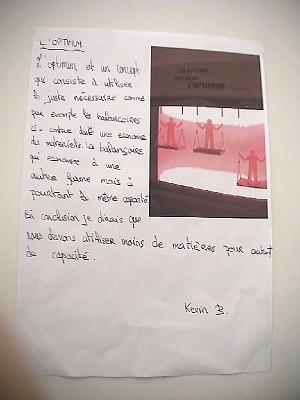 L'OPTIMUM
L'optimum est un concept
qui consiste à utiliser
le juste nécessaire comme
par exemple les balançoires
ci-contre dont une economie
du materiel la balançoire
qui economise à une
autre forme mais à
pourtant la même capacité
En conclusion je dirais que
nous devons utiliser moins de matières pour autant
de capacité.
Kevin B.
L'OPTIMUM